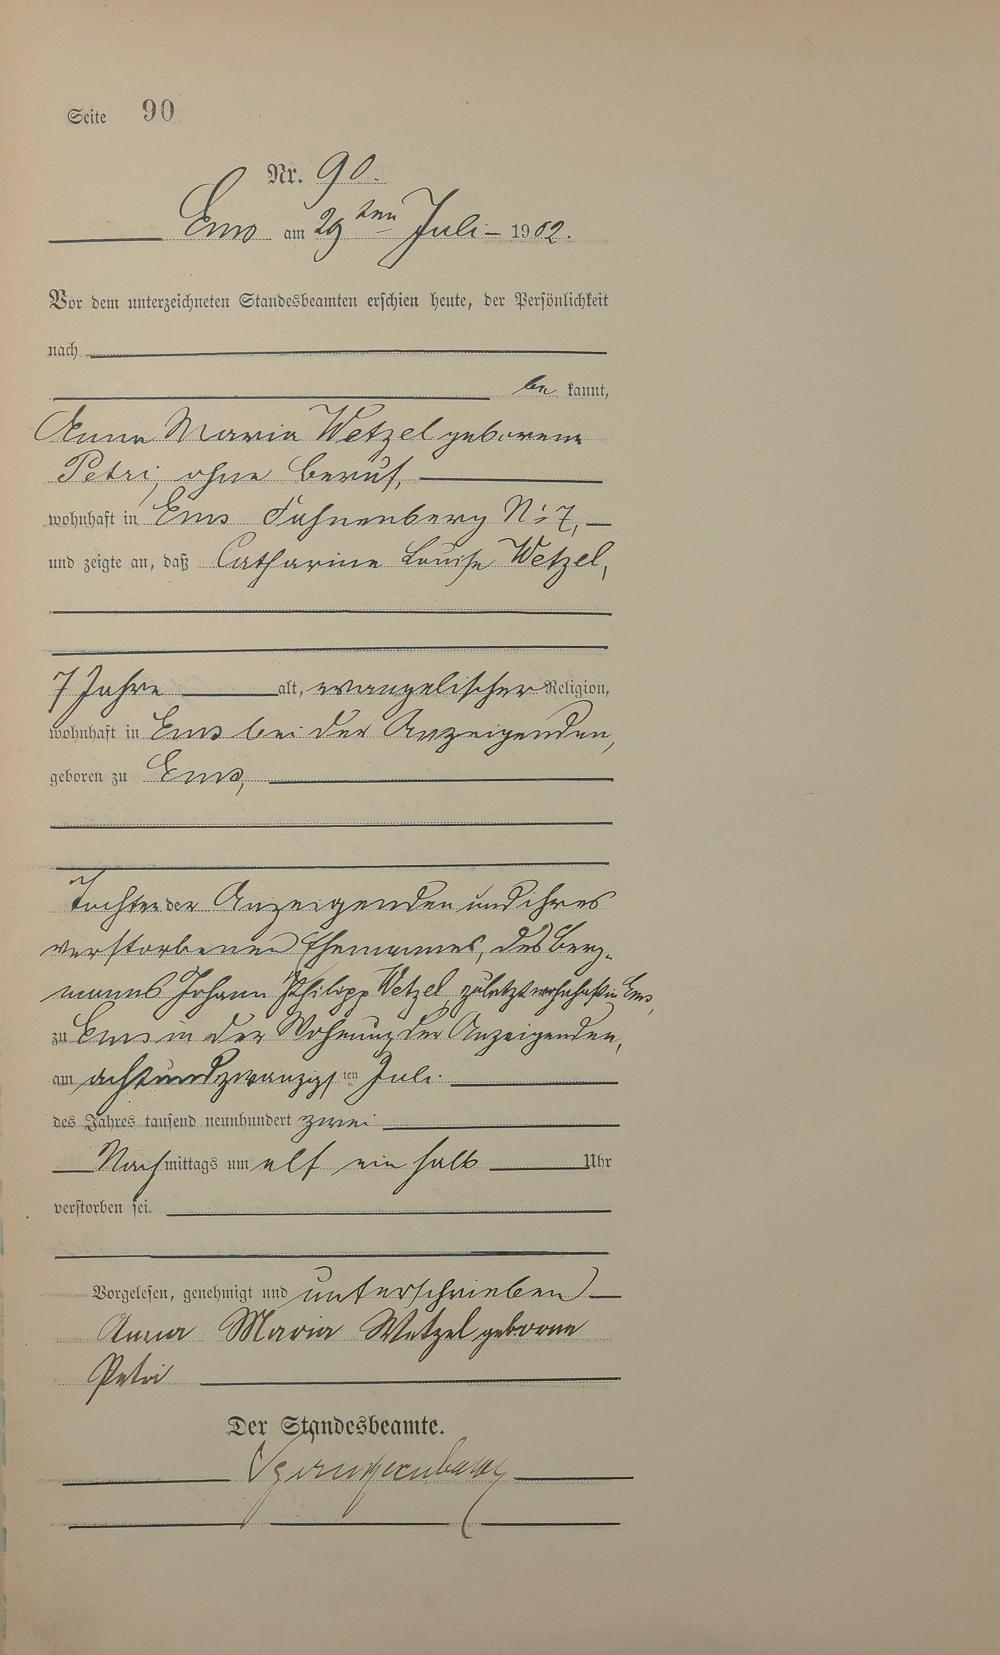 Seite 90
Nr. 90.
Ems am 29ten Juli 1902.
Vor dem unterzeichneten Standesbeamten erschien heute, der Persönlichkeit
nach
be kannt,
Anna Maria Wetzel geborene
Petri, ohne Beruf,
wohnhaft in Ems Fahnenberg No 7,
und zeigte an, daß Catharine Louise Wetzel,
7 Jahre alt, evangelischer Religion,
wohnhaft in Ems bei der Anzeigenden,
geboren zu Ems,
Tochter der Anzeigenden und ihres
verstorbenen Ehemannes, des Berg-
manns Johann Philipp Wetzel zuletzt wohnhaft in Ems,
zu Ems in der Wohnung der Anzeigenden,
am achtundzwanzigsten Juli
des Jahres tausend neunhundert zwei
Nachmittags um elf ein halb Uhr
verstorben sei.
Vorgelesen, genehmigt und unterschrieben
Anna Maria Wetzel geborne
Petri
Der Standesbeamte.